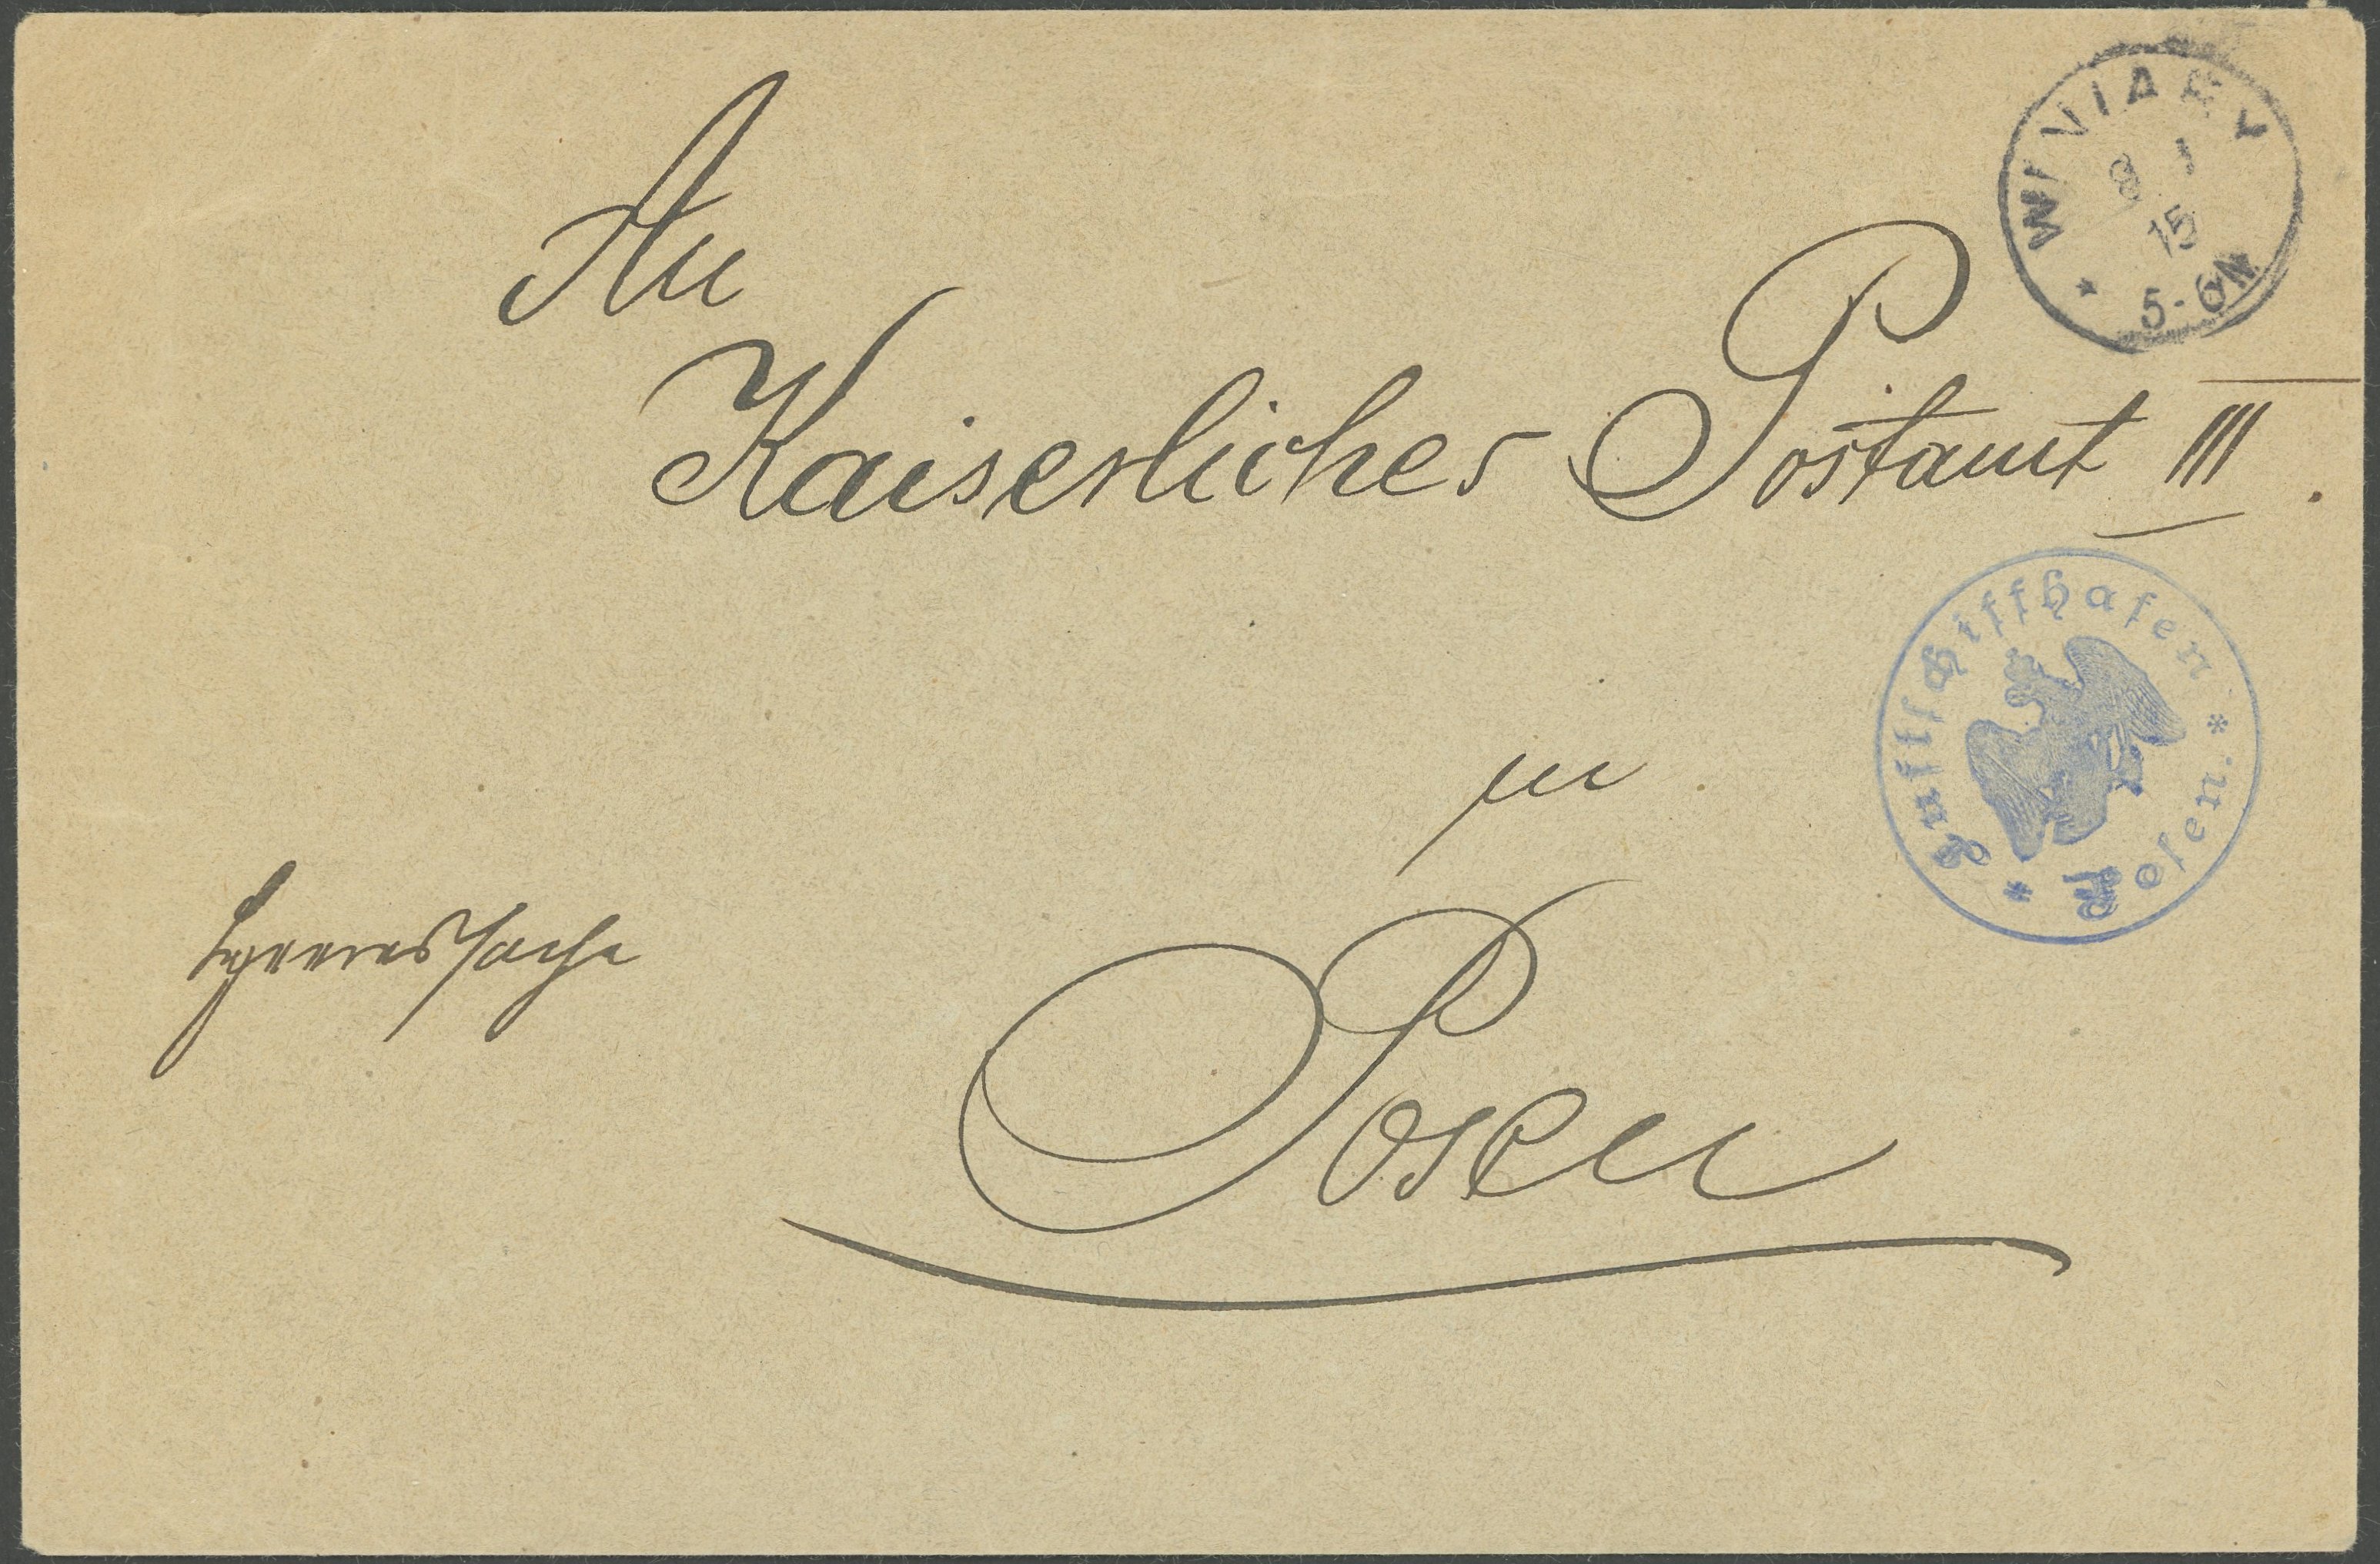 WINIARY
8 1
15
* 5-6N
An
Kaiserliches Postamt III.
Luftschiffhafen
* Posen. *
in
Heeressache
Posen